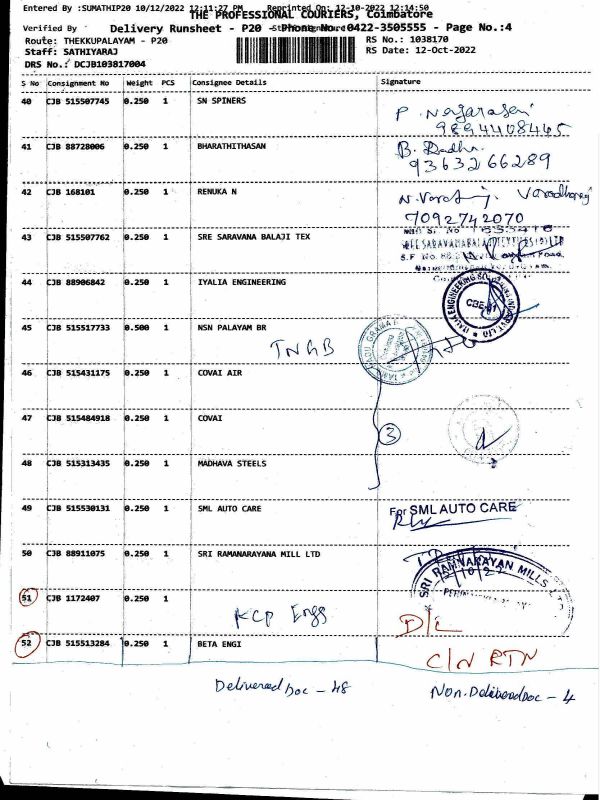 Entered By :SUMATHIP20 10/12/2022 12:11:27 PM Reprinted On: 12-10-2022 12:14:50
THE PROFESSIONAL COURIERS, Coimbatore
Verified By Delivery Runsheet - P20 - Phone No:0422-3505555 - Page No.:4
Route: THEKKUPALAYAM - P20 RS No.: 1038170
Staff: SATHIYARAJ RS Date: 12-Oct-2022
DRS No.: DCJB103817004
S No Consignment No Weight PCS Consignee Details Signature
40 CJB 515507745 0.250 1 SN SPINERS P. Nagarasan
9894408445
41 CJB 88728006 0.250 1 BHARATHITHASAN B. Radha.
9363266289
42 CJB 168101 0.250 1 RENUKA N Varadharaj
7092742070
43 CJB 515507762 0.250 1 SRE SARAVANA BALAJI TEX
44 CJB 88906842 0.250 1 IYALIA ENGINEERING CBE
45 CJB 515517733 0.500 1 NSN PALAYAM BR
TNGB
46 CJB 515431175 0.250 1 COVAI AIR
47 CJB 515484918 0.250 1 COVAI 3
48 CJB 515313435 0.250 1 MADHAVA STEELS
49 CJB 515530131 0.250 1 SML AUTO CARE For SML AUTO CARE
50 CJB 88911075 0.250 1 SRI RAMANARAYANA MILL LTD
SRI RAMNARAYAN MILLS
51 CJB 1172407 0.250 1
KCP Engg D/L
52 CJB 515513284 0.250 1 BETA ENGI
C/N RTN
Delivered Doc - 48 Non. Delivered Doc - 4